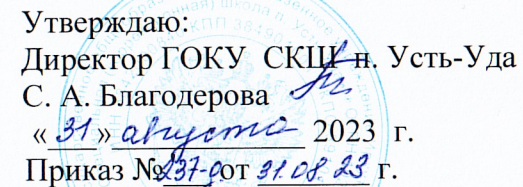 Утверждаю:
Директор ГОКУ СКШ п. Усть-Уда
С. А. Благодерова
«31» августа 2023 г.
Приказ №237-д от 31.08.23 г.